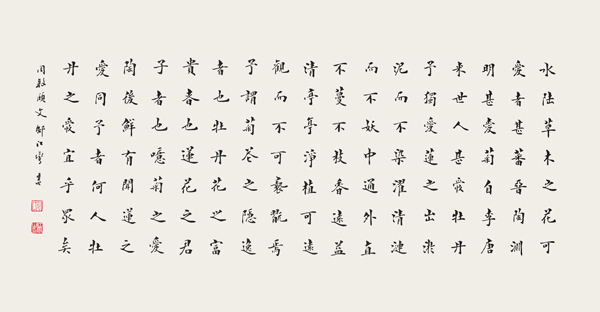 水陸草木之花可
愛者甚蕃晉陶淵
明甚愛菊自李唐
来世人甚愛牡丹
予獨愛蓮之出淤
泥而不染濯清漣
而不妖中通外直
不蔓不枝香遠益
清亭亭淨植可遠
觀而不可褻翫焉
予謂菊花之隱逸
者也牡丹花之富
貴者也蓮花之君
子者也噫菊之愛
陶後鮮有聞蓮之
愛同予者何人牡
丹之愛宜乎眾矣
周敦頤文